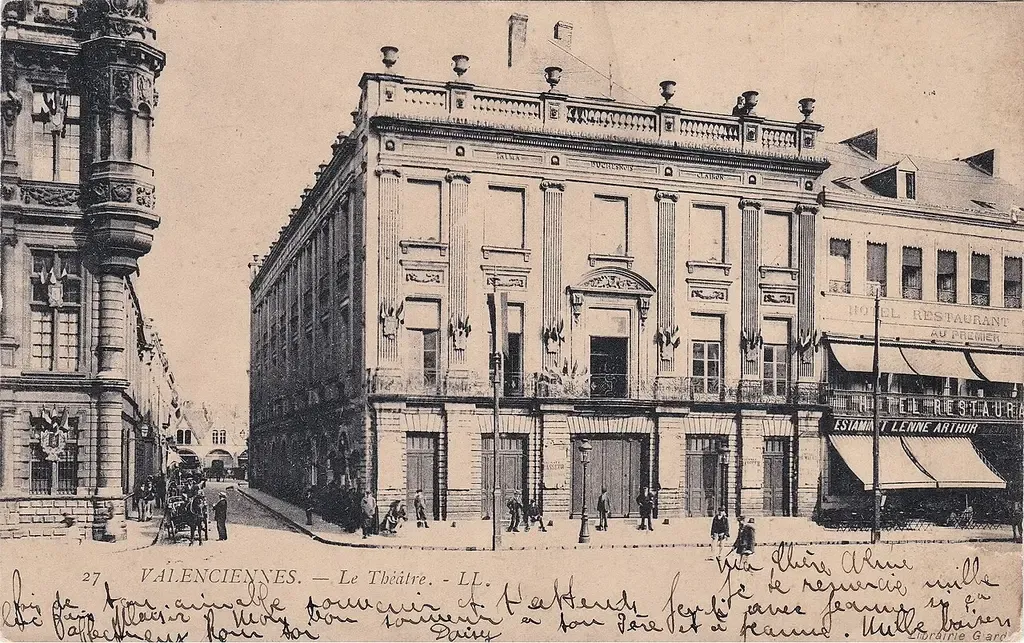 TALMA
CLAIRON
HOTEL RESTAURANT
AU PREMIER
HOTEL RESTAURA
ESTAMINT LENNE ARTHUR
27 VALENCIENNES. — Le Théâtre. - LL.
Ma Chère Aline
Je te remercie mille
fois de ton aimable souvenir et t'attends avec Jeanne si ça
plaisir mon bon souvenir a ton Père et à Jeanne. Mille baisers
affectueux Pour toi
Daisy
Librairie Giard